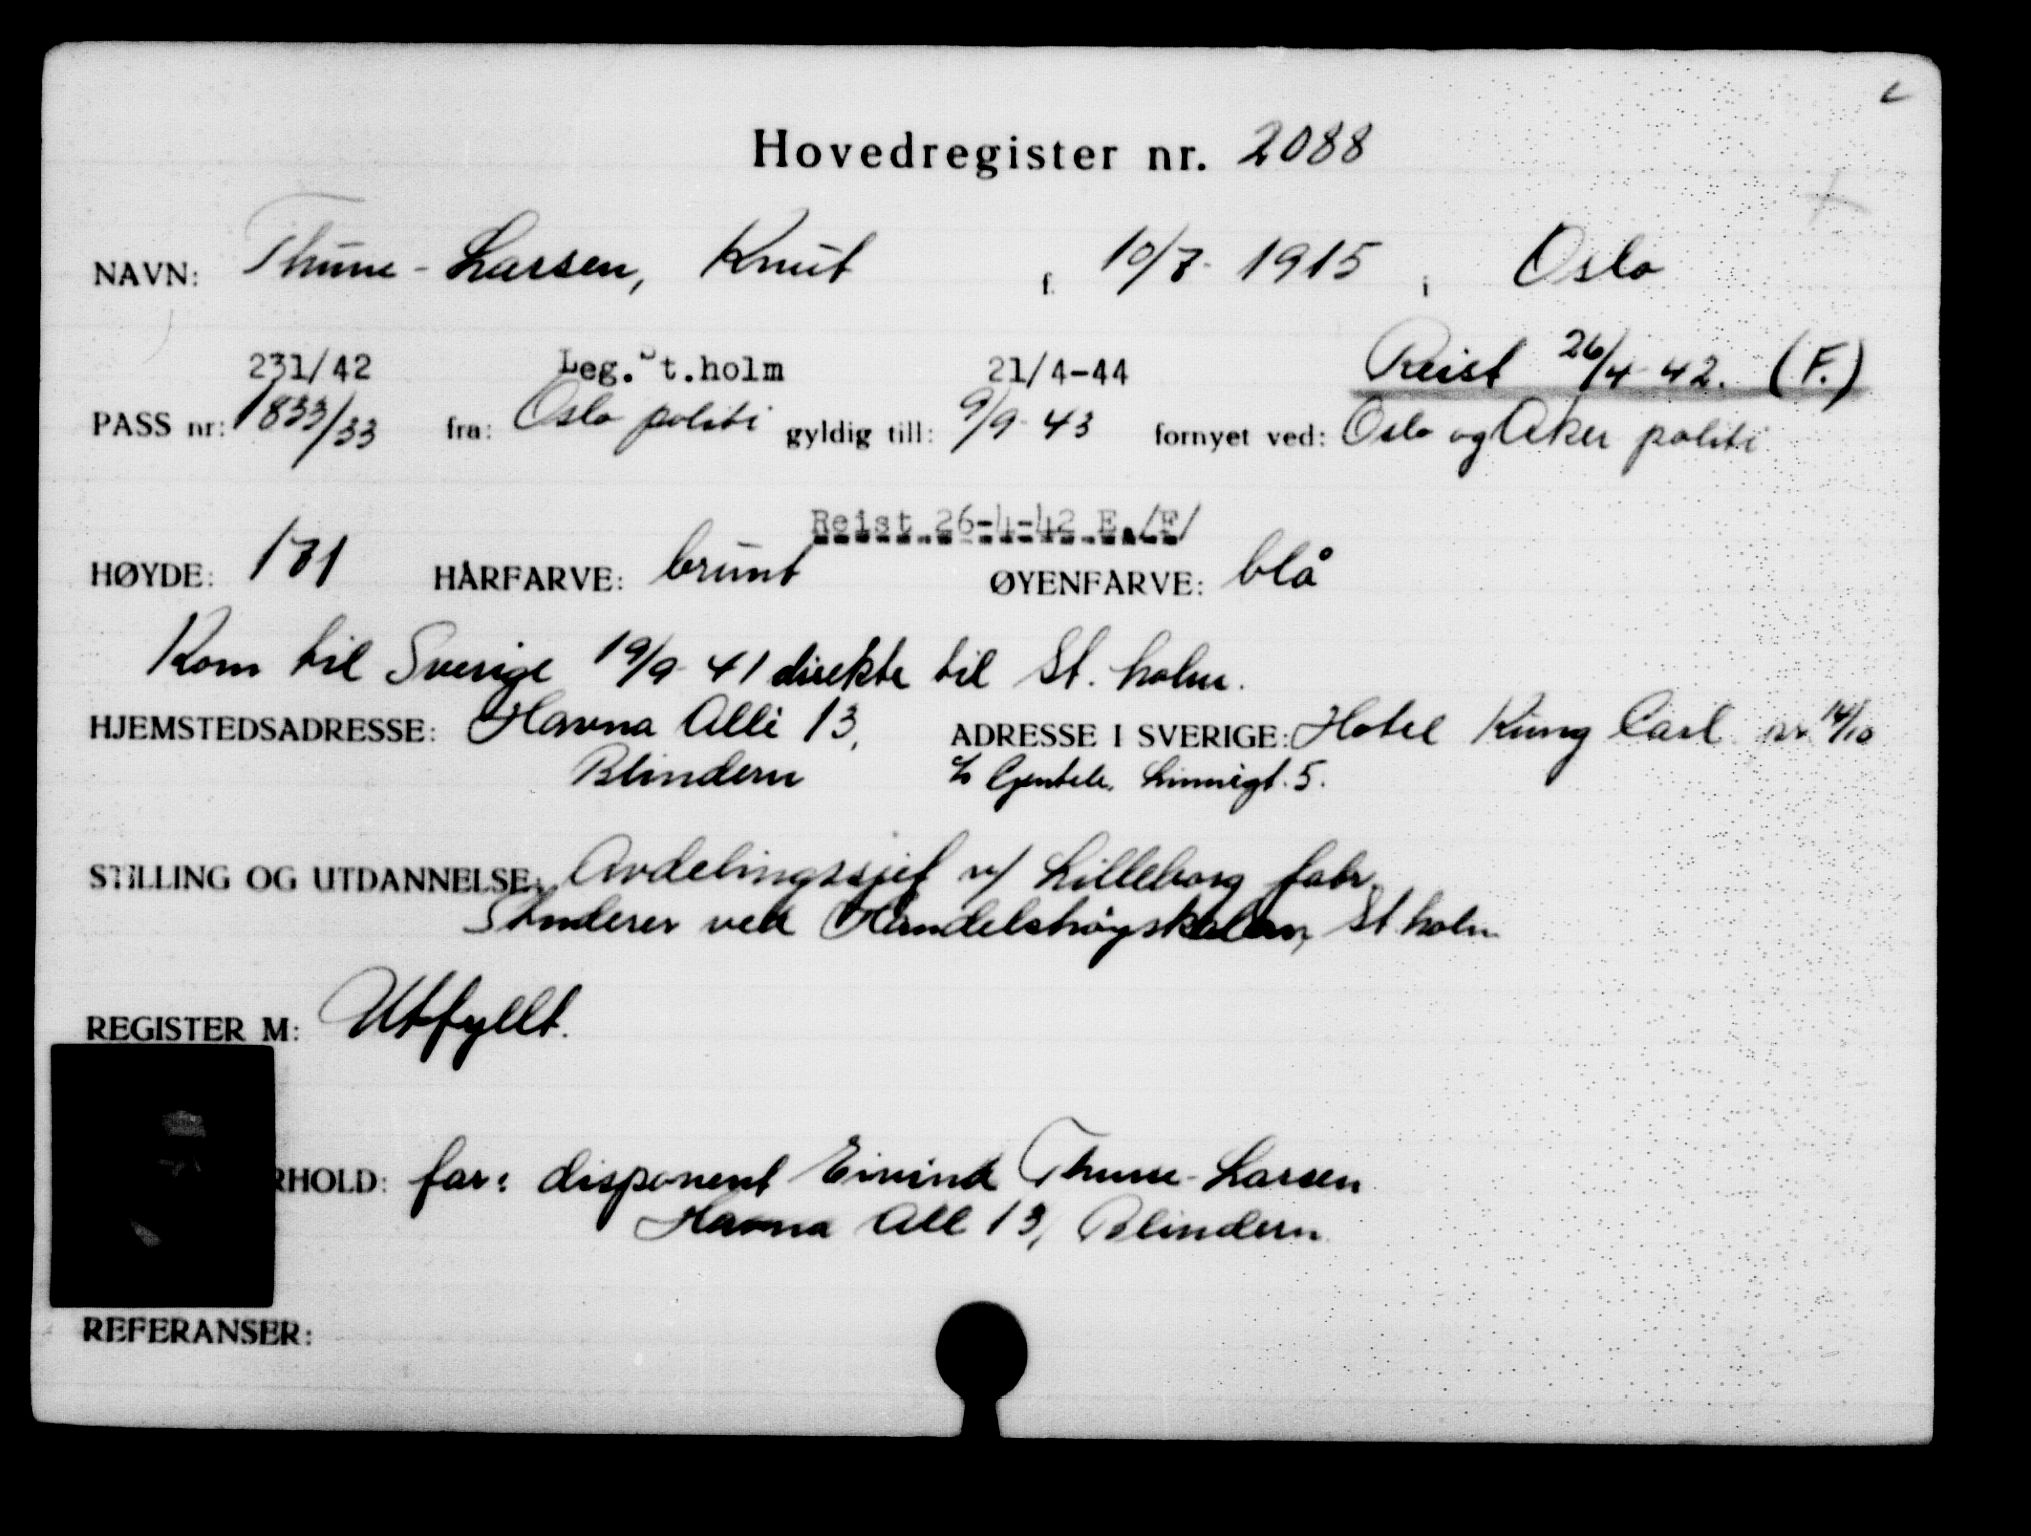 Hovedregister nr. 2088
NAVN: Thune-Larsen, Knut f. 10/7-1915 i Oslo
231/42 Leg. St.holm 21/4-44 Reist 26/4-42. (F.)
PASS nr: 1833/33 fra: Oslo politi gyldig till: 9/9-43 fornyet ved: Oslo og Aker politi
Reist 26-4-42 E./F/
HØYDE: 181 HÅRFARVE: brunt ØYENFARVE: blå
Kom til Sverige 19/9-41 direkte til St. holm.
HJEMSTEDSADRESSE: Havna Allé 13, ADRESSE I SVERIGE: Hotel Kung Carl nr. 14/10
Blindern c/o Gentele, Linnégt. 5.
STILLING OG UTDANNELSE: Avdelingssjef v/ Lilleborg fabr.
Studerer ved Handelshøyskolen, St holm
REGISTER M: Utfyllt.
RHOLD: far: disponent Eivind Thune-Larsen
Havna All 13, Blindern
REFERANSER: